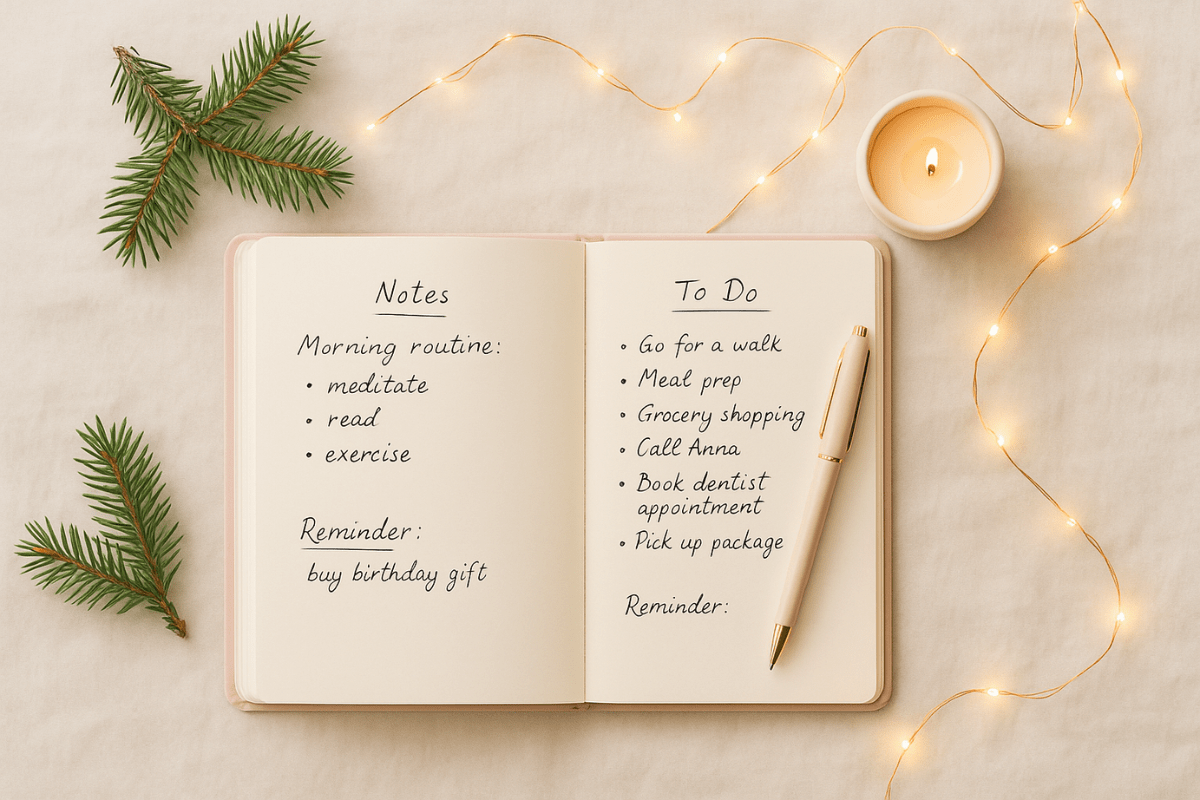 Notes
Morning routine:
• meditate
• read
• exercise
Reminder:
buy birthday gift
To Do
• Go for a walk
• Meal prep
• Grocery shopping
• Call Anna
• Book dentist
appointment
• Pick up package
Reminder: